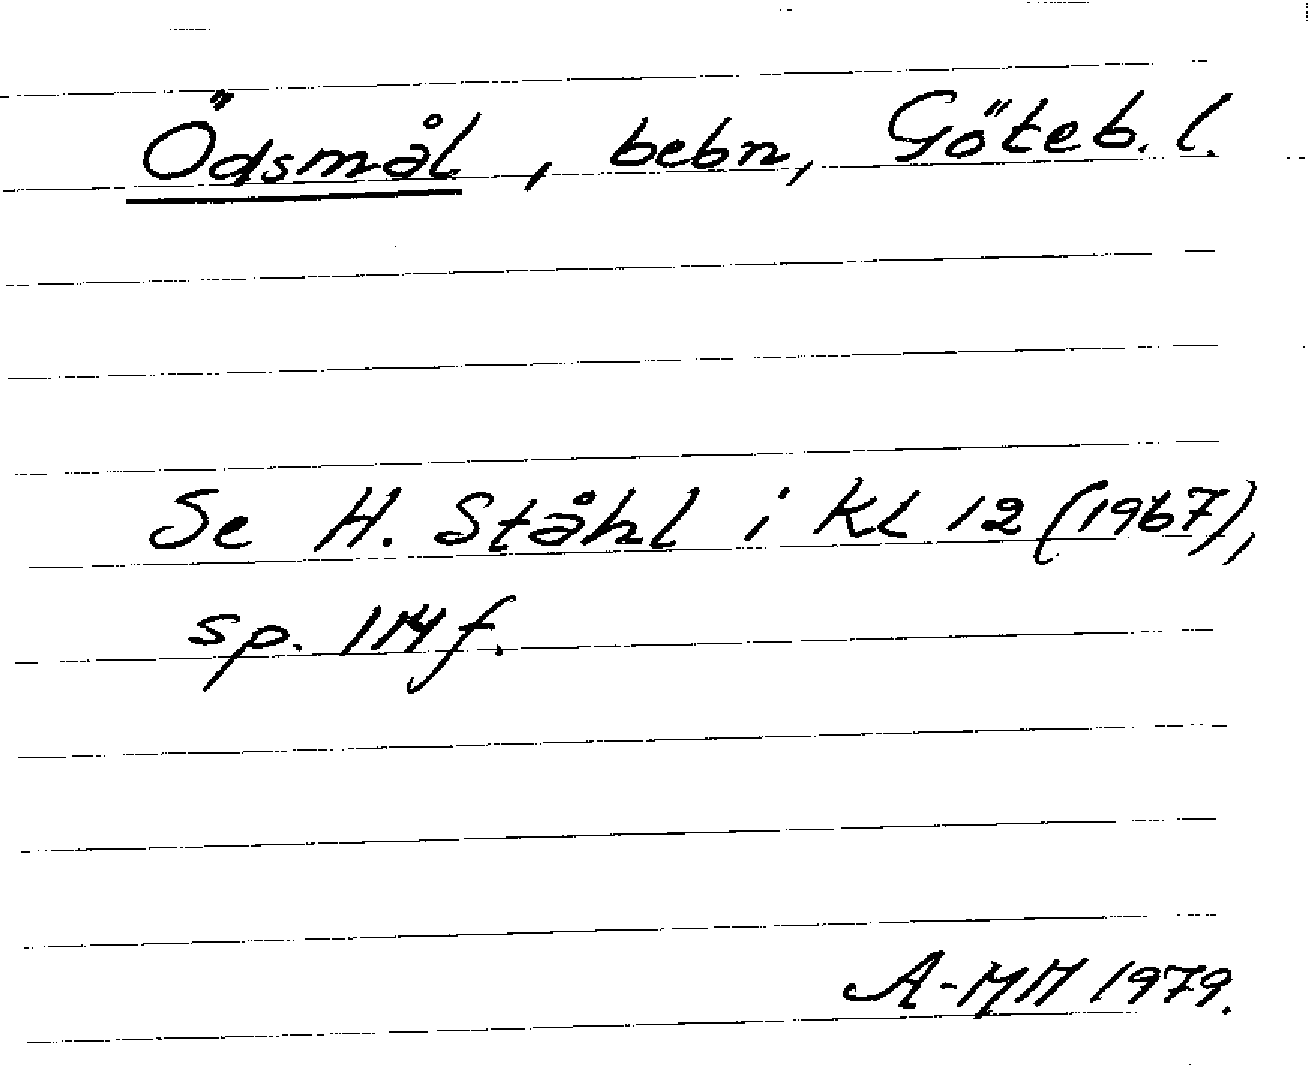 Ödsmål, bebn, Göteb. l.
Se H. Ståhl i KL 12 (1967),
sp. 114 f.
A-MM 1979.